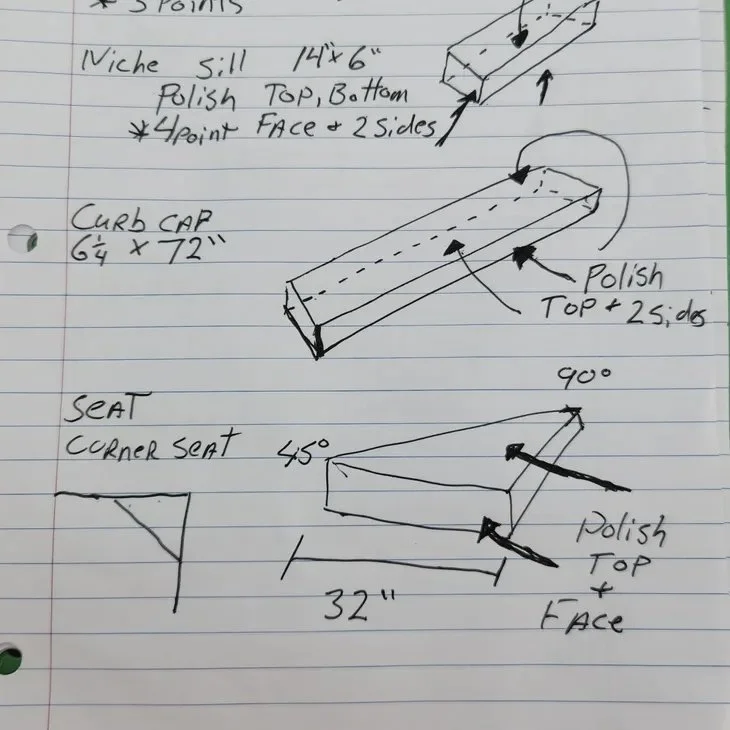 * 3 POINTS
Niche Sill 14"x6"
POLISH TOP, BOTTOM
*4POINT FACE + 2 Sides
CURB CAP
6 1/4 x 72"
POLISH
TOP + 2 Sides
SEAT
CORNER SEAT
90°
45°
POLISH
TOP
+
FACE
32"